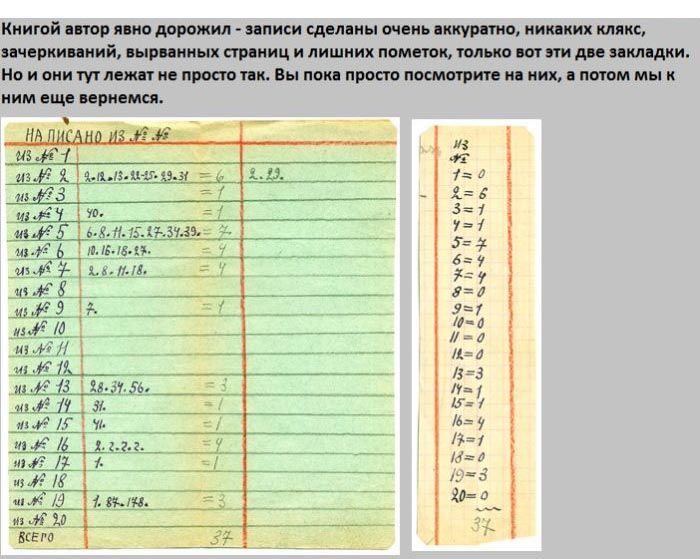 Книгой автор явно дорожил - записи сделаны очень аккуратно, никаких клякс,
зачеркиваний, вырванных страниц и лишних пометок, только вот эти две закладки.
Но и они тут лежат не просто так. Вы пока просто посмотрите на них, а потом мы к
ним еще вернемся.
НАПИСАНО ИЗ №№
ИЗ № 1
ИЗ № 2 2.12.13.22.25.29.31 = 6 2.29.
ИЗ № 3 = 1
ИЗ № 4 40. = 1
ИЗ № 5 6.8.11.15.27.34.39. = 7
ИЗ № 6 10.16.18.27. = 4
ИЗ № 7 2.8.11.18. = 4
ИЗ № 8
ИЗ № 9 7. = 1
ИЗ № 10
ИЗ № 11
ИЗ № 12
ИЗ № 13 28.34.56. = 3
ИЗ № 14 31. = 1
ИЗ № 15 41. = 1
ИЗ № 16 2.2.2.2. = 4
ИЗ № 17 1. = 1
ИЗ № 18
ИЗ № 19 1.87.178. = 3
ИЗ № 20
ВСЕГО 37
ИЗ
№
1 = 0
2 = 6
3 = 1
4 = 1
5 = 7
6 = 4
7 = 4
8 = 0
9 = 1
10 = 0
11 = 0
12 = 0
13 = 3
14 = 1
15 = 1
16 = 4
17 = 1
18 = 0
19 = 3
20 = 0
37